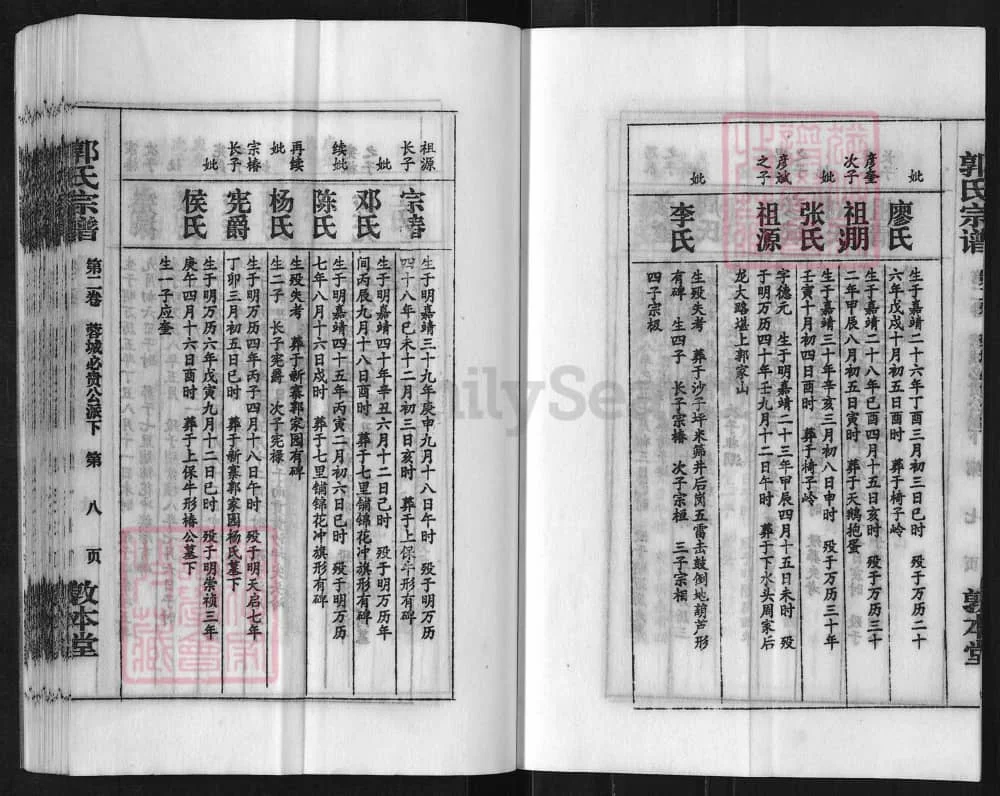 郭氏宗谱
敦本堂
妣
廖氏
生于嘉靖二十六年丁酉三月初三日巳时 殁于万历二十
六年戊戌十月初五日酉时 葬于椅子岭
彦奎
次子
祖淜
生于嘉靖二十八年己酉四月十五日亥时 殁于万历三十
二年甲辰八月初五日寅时 葬于天鹅抱蛋
妣
张氏
生于嘉靖三十年辛亥三月初八日申时 殁于万历三十年
壬寅十月初四日寅时 葬于椅子岭
彦斌
之子
祖源
字德元 生于明嘉靖二十三年甲辰四月十五日未时 殁
于明万历四十年壬九月十二日午时 葬于下水头周家后
龙大路堪上郭家山
妣
李氏
生殁失考 葬于沙子坪米筛井后岗五雷击鼓倒地葫芦形
有碑 生四子 长子宗椿 次子宗桓 三子宗相
四子宗极
祖源
长子
宗椿
生于明嘉靖三十九年庚申九月十八日午时 殁于明万历
四十八年巳未十二月初三日亥时 葬于上保牛形有碑
妣
邓氏
生于明嘉靖四十年辛丑六月十二日己时 殁于明万历年
间丙辰九月十八日酉时 葬于七里铺锦花冲旗形有碑
续妣
陈氏
生于明嘉靖四十五年丙寅二月初六日巳时 殁于明万历
七年八月十六日戌时 葬于七里铺锦花冲旗形有碑
再续
妣
杨氏
生殁失考 葬于新寨郭家园有碑
生二子 长子宪爵 次子宪禄
宗椿
长子
宪爵
生于明万历四年丙子四月十八日午时 殁于明天启七年
丁卯三月初五日巳时 葬于新寨郭家园杨氏墓下
妣
侯氏
生于明万历六年戊寅九月十二日巳时 殁于明崇祯三年
庚午四月十六日酉时 葬于上保牛形椿公墓下
生一子应奎
郭氏宗谱
第二卷 蓉城必贵公派下 第 八 页
敦本堂
FamilySearch